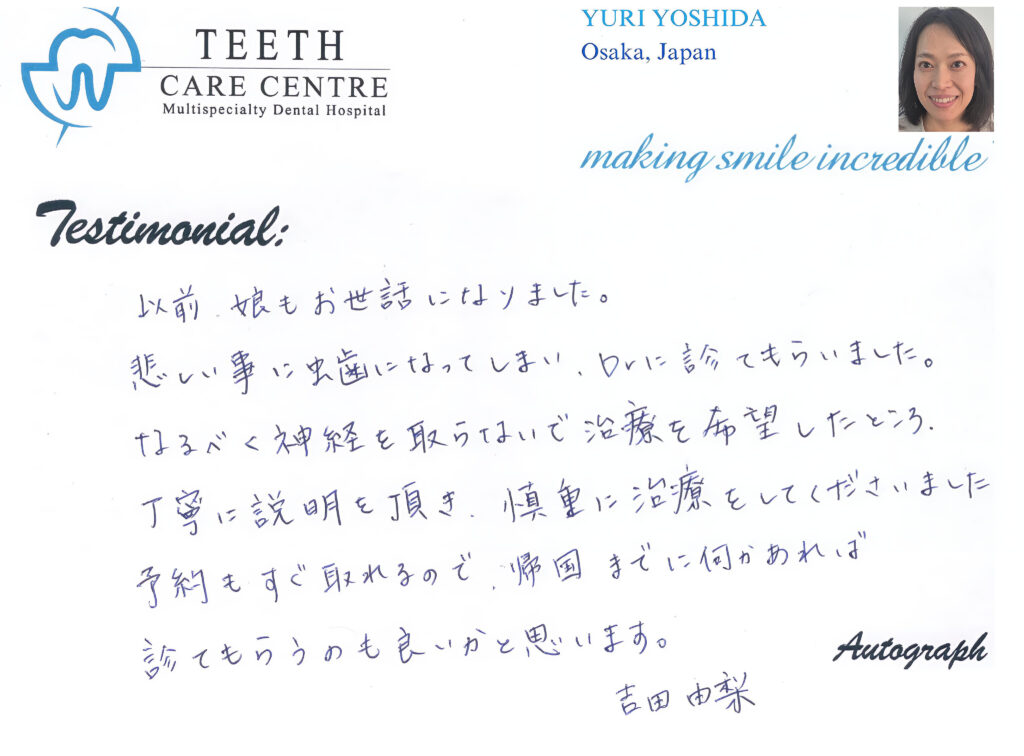 TEETH
CARE CENTRE
Multispecialty Dental Hospital
YURI YOSHIDA
Osaka, Japan
making smile incredible
Testimonial:
以前、娘もお世話になりました。
悲しい事に虫歯になってしまい、Drに診てもらいました。
なるべく神経を取らないで治療を希望したところ、
丁寧に説明を頂き、慎重に治療をしてくださいました
予約もすぐ取れるので、帰国までに何かあれば
診てもらうのも良いかと思います。
Autograph
吉田 由梨